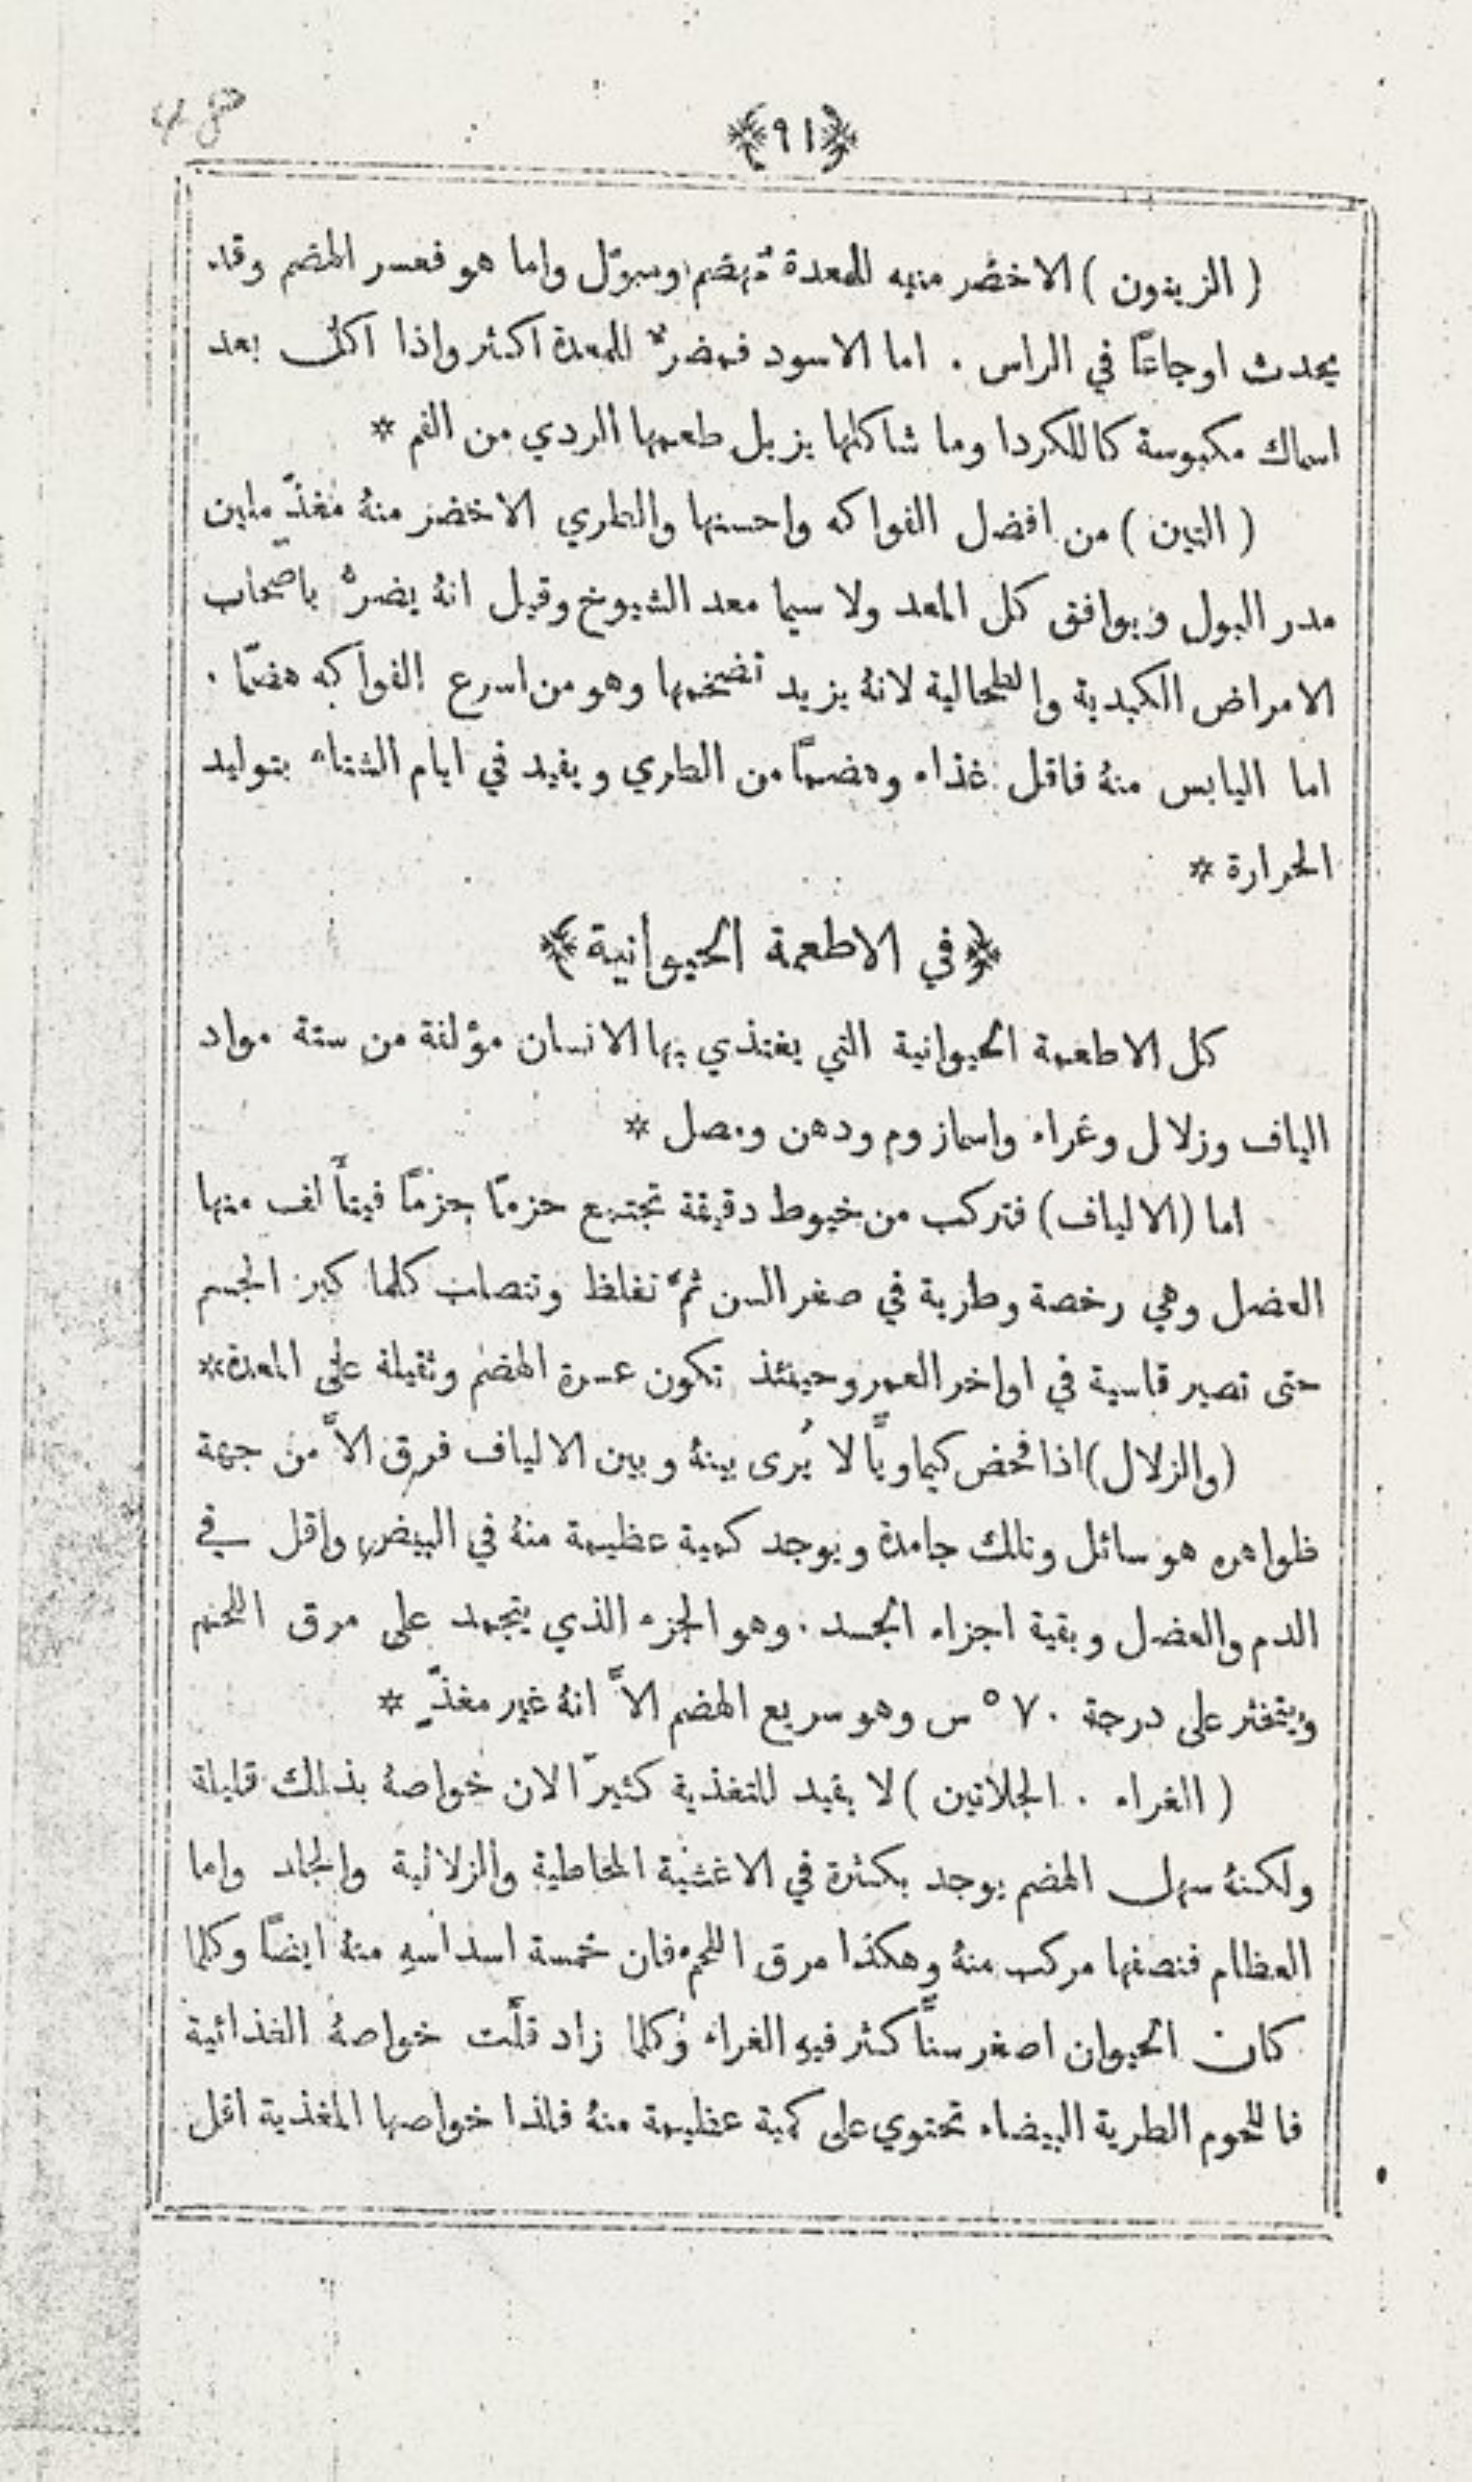 ﴿٩١﴾
( الزيتون ) الاخضر منبه للمعدة مُهضم ومبوّل واما هو فعسر الهضم وقد
يحدث اوجاعًا في الراس . اما الاسود فمضرٌّ للمعدة اكثر واذا اكل بعد
اسماك مكبوسة كاللكردا وما شاكلها يزيل طعمها الردي من الفم *
( التين ) من افضل الفواكه واحسنها والطري الاخضر منهُ مغذّ ملين
مدر البول ويوافق كل المعد ولا سيما معد الشيوخ وقيل انهُ يضرّ باصحاب
الامراض الكبدية والطحالية لانهُ يزيد تضخمها وهو من اسرع الفواكه هضمًا .
اما اليابس منهُ فاقل غذاء وهضمًا من الطري ويفيد في ايام الشتاء بتوليد
الحرارة *
﴿في الاطعمة الحيوانية﴾
كل الاطعمة الحيوانية التي يغتذي بها الانسان مؤلفة من ستة مواد
الياف وزلال وغراء واسمازوم ودهن ومصل *
اما (الالياف) فتركب من خيوط دقيقة تجتمع حزمًا حزمًا فيتأَلف منها
العضل وهي رخصة وطرية في صغر السن ثمَّ تغلظ وتتصلب كلما كبر الجسم
حتى تصير قاسية في اواخر العمر وحينئذ تكون عسرة الهضم وثقيلة على المعدة*
(والزلال) اذا فحص كيماويًّا لا يُرى بينهُ وبين الالياف فرق الاَّ من جهة
ظواهره هو سائل وتلك جامدة ويوجد كمية عظيمة منهُ في البيض واقل في
الدم والعضل وبقية اجزاء الجسد . وهو الجزء الذي يتجمد على مرق اللحم
ويتخثر على درجة ٧٠ ° س وهو سريع الهضم الاَّ انهُ غير مغذٍّ *
( الغراء . الجلاتين ) لا يفيد للتغذية كثيرًا لان خواصهُ بذلك قليلة
ولكنهُ سهل الهضم يوجد بكثرة في الاغشية المخاطية والزلالية والجلد واما
العظام فنصفها مركب منهُ وهكذا مرق اللحم فان خمسة اسداسهِ منهُ ايضًا وكلما
كان الحيوان اصغر سنًّا كثر فيهِ الغراء وكلما زاد قلَّت خواصهُ الغذائية
فاللحوم الطرية البيضاء تحتوي على كمية عظيمة منهُ فلذا خواصها المغذية اقل